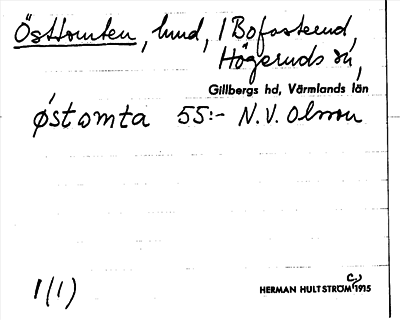 Östtomten, lund, 1 Bofasterud,
Högeruds sn,
Gillbergs hd, Värmlands län
østomta 55:- N.V. Olsson
1(1)
HERMAN HULTSTRÖM 1915